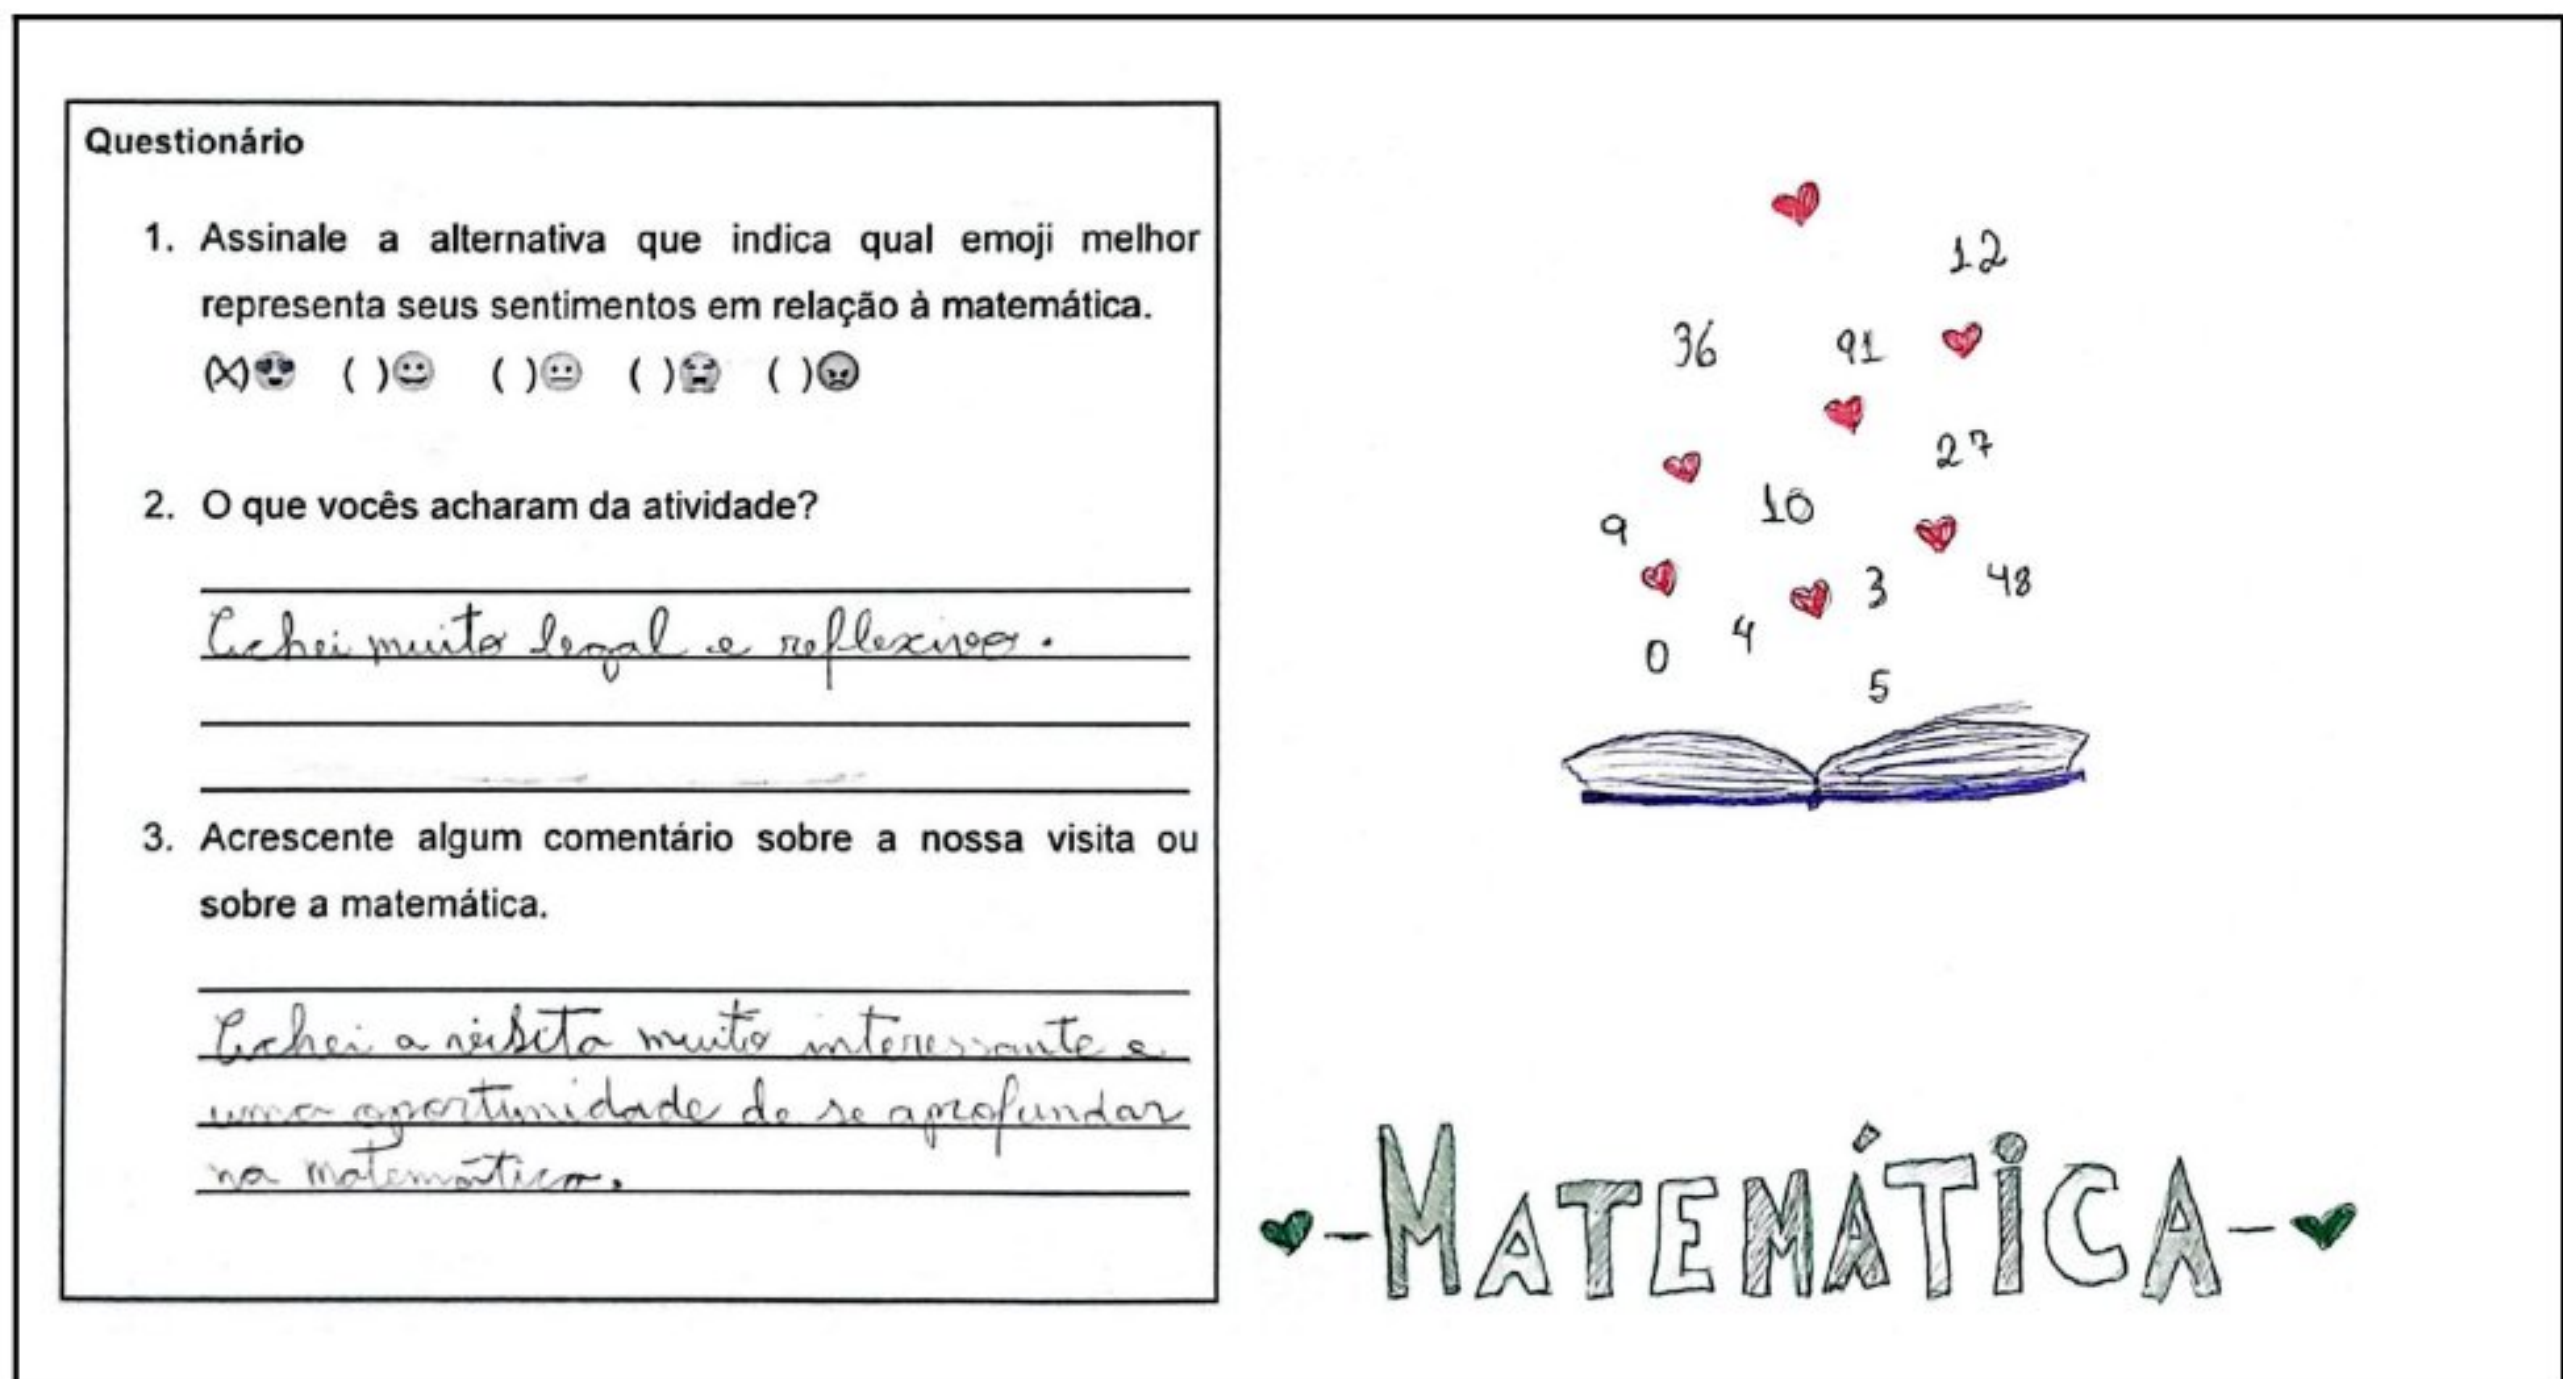 Questionário
1. Assinale a alternativa que indica qual emoji melhor
representa seus sentimentos em relação à matemática.
(X)😍 ( )😀 ( )😐 ( )😭 ( )😠
2. O que vocês acharam da atividade?
Achei muito legal e reflexivo.
3. Acrescente algum comentário sobre a nossa visita ou
sobre a matemática.
Achei a visita muito interessante e
uma oportunidade de se aprofundar
na matemática.
12
36 91
27
10
9
3 48
4
0
5
-MATEMÁTICA-